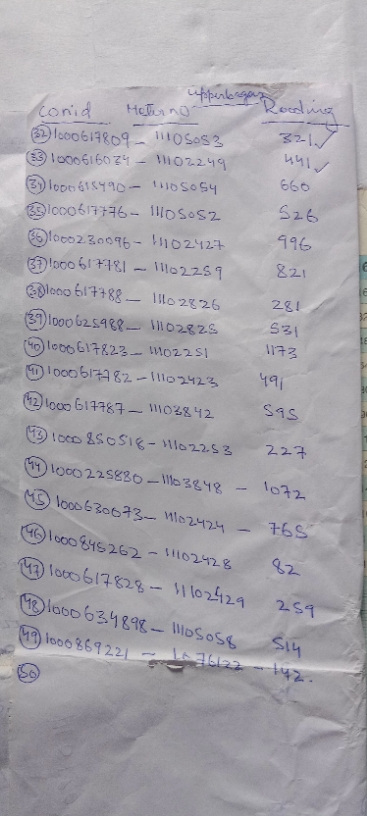 upperbagan
Conid Meter no Reading
(32) 1000617809 – 11105053 321 ✓
(33) 1000616034 – 11102249 441 ✓
(34) 1000615490 – 11105054 660
(35) 1000617776 – 11105052 526
(36) 1000230096 – 11102427 996
(37) 1000617781 – 11102259 821
(38) 1000617788 – 11102826 281
(39) 1000625988 – 11102825 531
(40) 1000617823 – 11102251 1173
(41) 1000617782 – 11102423 491
(42) 1000617787 – 11103842 595
(43) 1000850518 – 11102253 227
(44) 1000225830 – 11103848 – 1072
(45) 1000630073 – 11102424 – 765
(46) 1000845262 – 11102428 82
(47) 1000617828 – 11102429 259
(48) 1000634898 – 11105058 514
(49) 1000869221 – 76122 – 142.
(50)